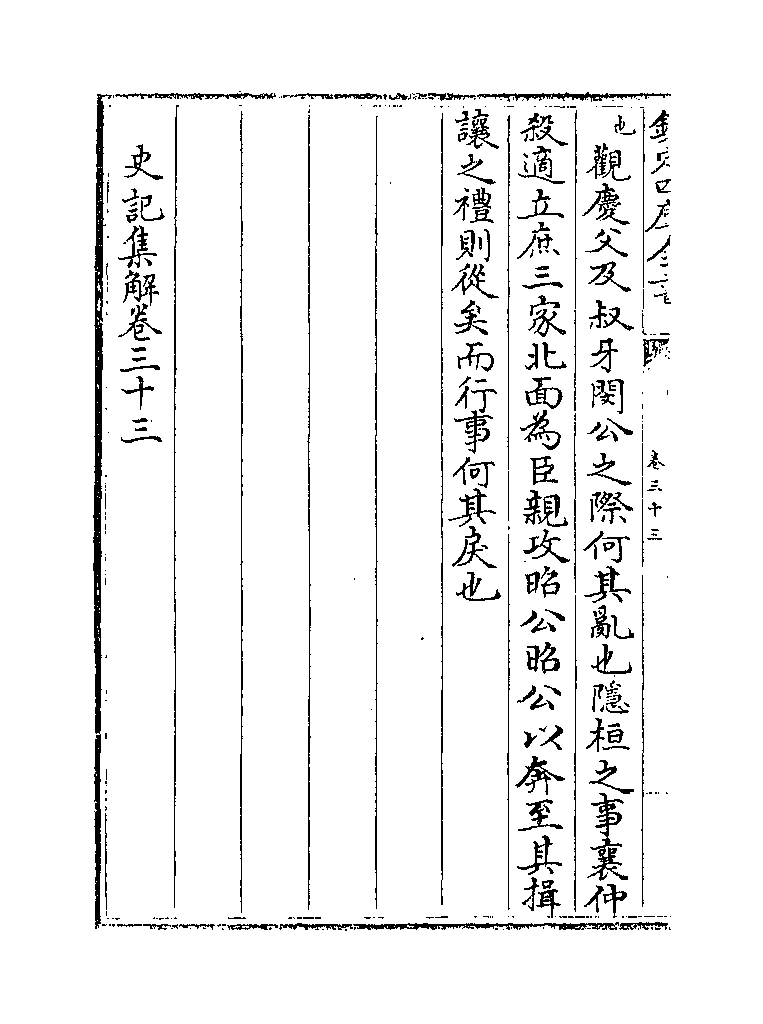 欽定四庫全書
卷三十三
也
觀慶父及叔牙閔公之際何其亂也隱桓之事襄仲
殺適立庶三家北面為臣親攻昭公昭公以奔至其揖
讓之禮則從矣而行事何其戾也
史記集解卷三十三